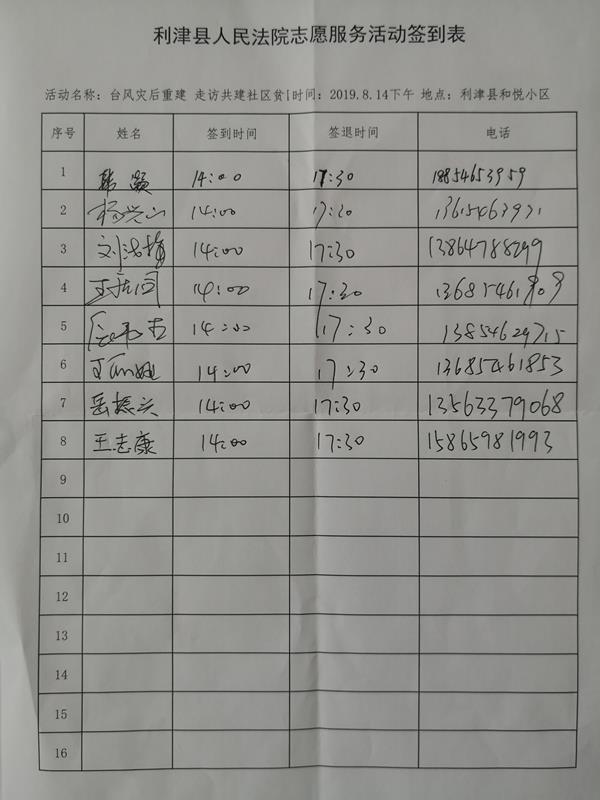 利津县人民法院志愿服务活动签到表
活动名称：台风灾后重建 走访共建社区贫 时间：2019.8.14下午 地点：利津县和悦小区
序号 姓名 签到时间 签退时间 电话
1 韩灏 14:00 17:30 18854653959
2 杨兴山 14:00 17:30
3 刘洪梅 14:00 17:30 13864788299
4 14:00 17:30
5 14:00 17:30 13854629715
6 14:00 17:30 13685461853
7 岳振兴 14:00 17:30 13563379068
8 王志康 14:00 17:30 15865981993
9
10
11
12
13
14
15
16